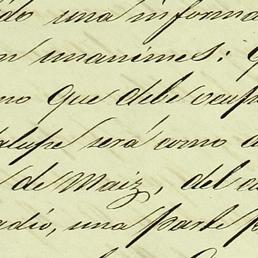 do una inform
n unanimes:
no que debe ocup
alupe será como
de Maiz, del
adio, una parte